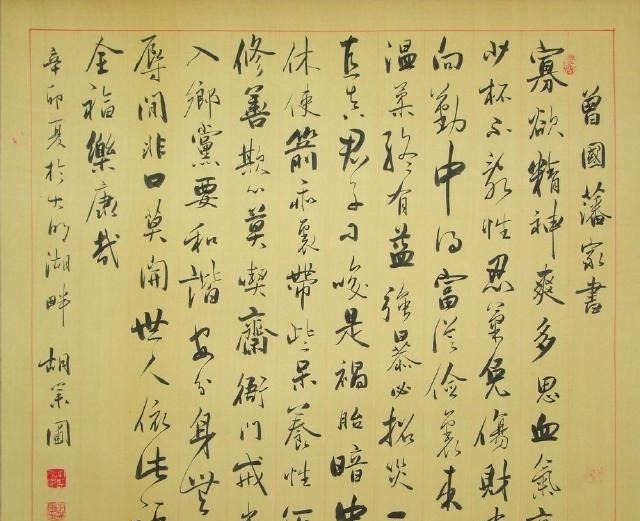 曾國藩家書
寡欲精神爽多思血氣
少杯不亂性忍氣免傷財
向勤中得富從儉裏來
溫柔終有益強暴必招災
直真君子刁唆是禍胎暗中
休使箭乖裏帶些呆養性
修善欺心莫喫齋衙門戒
入鄉黨要和諧安分身無
辱閒非口莫開世人依此
全福樂康哉
辛卯夏於大明湖畔 胡